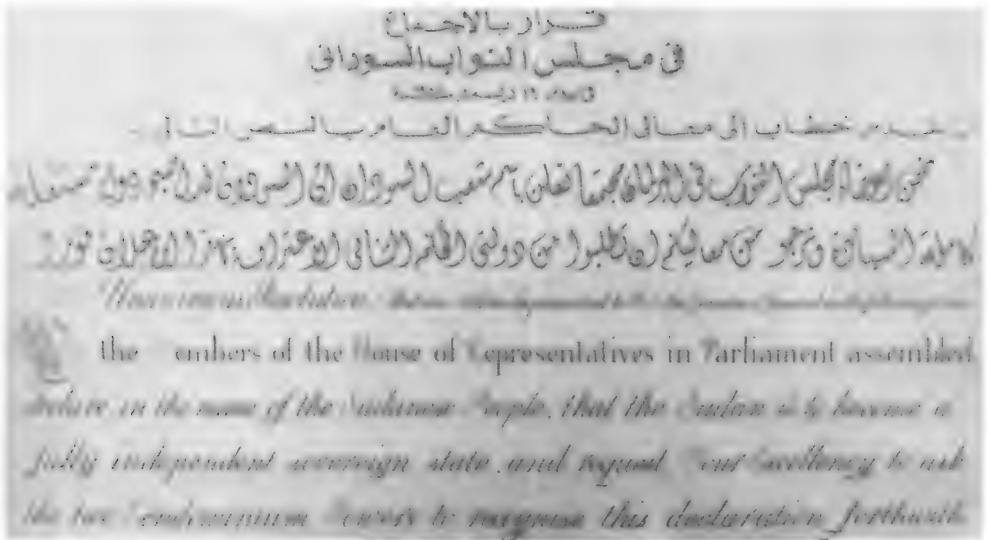 قرار بالإجماع
في مجلس النواب السوداني
خطاب إلى معالي الحاكم العام
نحن أعضاء مجلس النواب في البرلمان مجتمعا نعلن باسم شعب السودان أن السودان قد أصبح دولة مستقلة
كاملة السيادة ونرجو من معاليكم أن تطلبوا من دولتي الحكم الثنائي الاعتراف بهذا الإعلان فورا
Unanimous Resolution
the Members of the House of Representatives in Parliament assembled
declare in the name of the Sudanese People, that the Sudan is to become a
fully independent sovereign state and request Your Excellency to ask
the two Condominium Powers to recognise this declaration forthwith